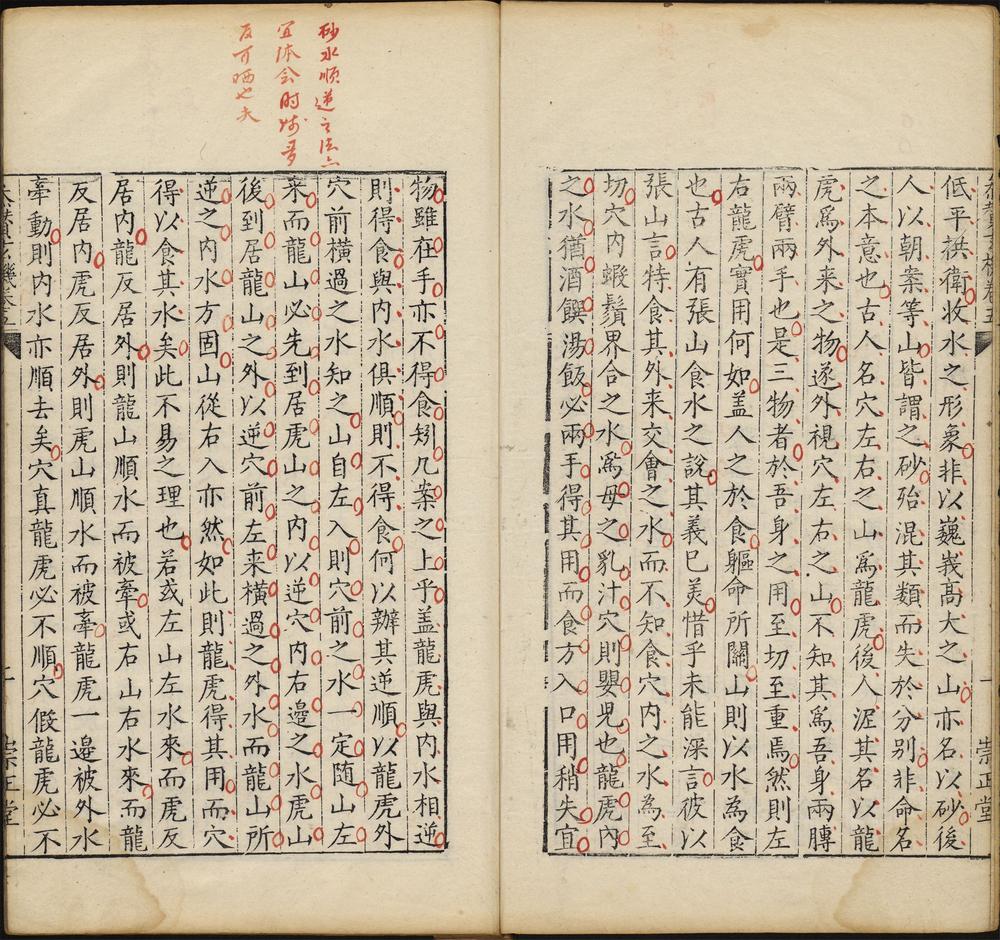 低平拱衛收水之形象非以巍峩髙大之山亦名以砂後
人以朝案等山皆謂之砂殆混其類而失於分別非命名
之本意也古人名穴左右之山爲龍虎後人泥其名以龍
虎爲外来之物遂外視穴左右之山不知其爲吾身兩膊
兩臂兩手也是三物者於吾身之用至切至重焉然則左
右龍虎實用何如盖人之於食軀命所關山則以水為食
也古人有張山食水之說其義已美惜乎未能深言彼以
張山言特食其外来交會之水而不知食穴内之水為至
切穴内蝦鬚界合之水爲母之乳汁穴則嬰児也龍虎内
之水猶酒饌湯飯必兩手得其用而食方入口用稍失宜
崇正堂
砂水順逆之法亦
宜体会时师多
反可哂也夫
物雖在手亦不得食矧几案之上乎盖龍虎與内水相逆
則得食與内水俱順則不得食何以辦其逆順以龍虎外
穴前橫過之水知之山自左入則穴前之水一定随山左
来而龍山必先到居虎山之内以逆穴内右邉之水虎山
後到居龍山之外以逆穴前左来橫過之外水而龍山所
逆之内水方固山從右入亦然如此則龍虎得其用而穴
得以食其水矣此不易之理也若或左山左水來而虎反
居内龍反居外則龍山順水而被牽或右山右水來而龍
反居内虎反居外則虎山順水而被牽龍虎一邉被外水
牽動則内水亦順去矣穴真龍虎必不順穴假龍虎必不
崇正堂